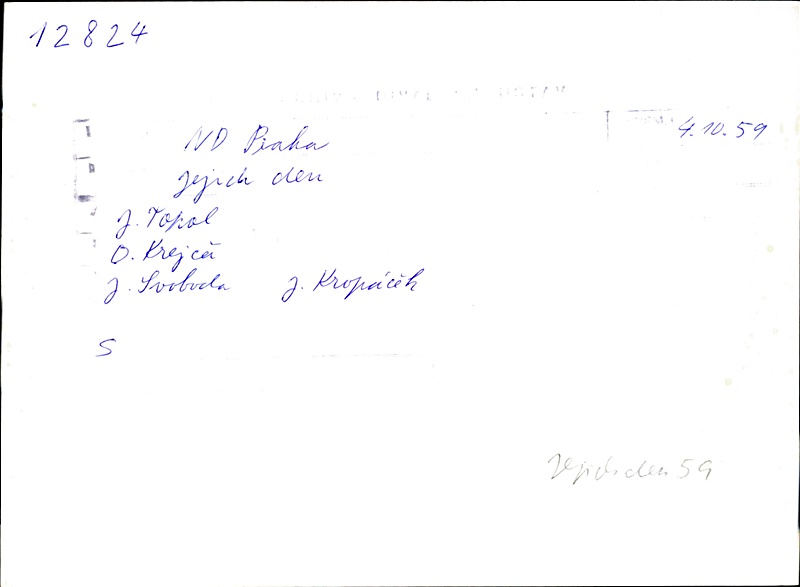 12824
4.10.59
ND Praha
Jejich den
J. Topol
O. Krejča
J. Svoboda J. Kropáček
S
Jejich den 59